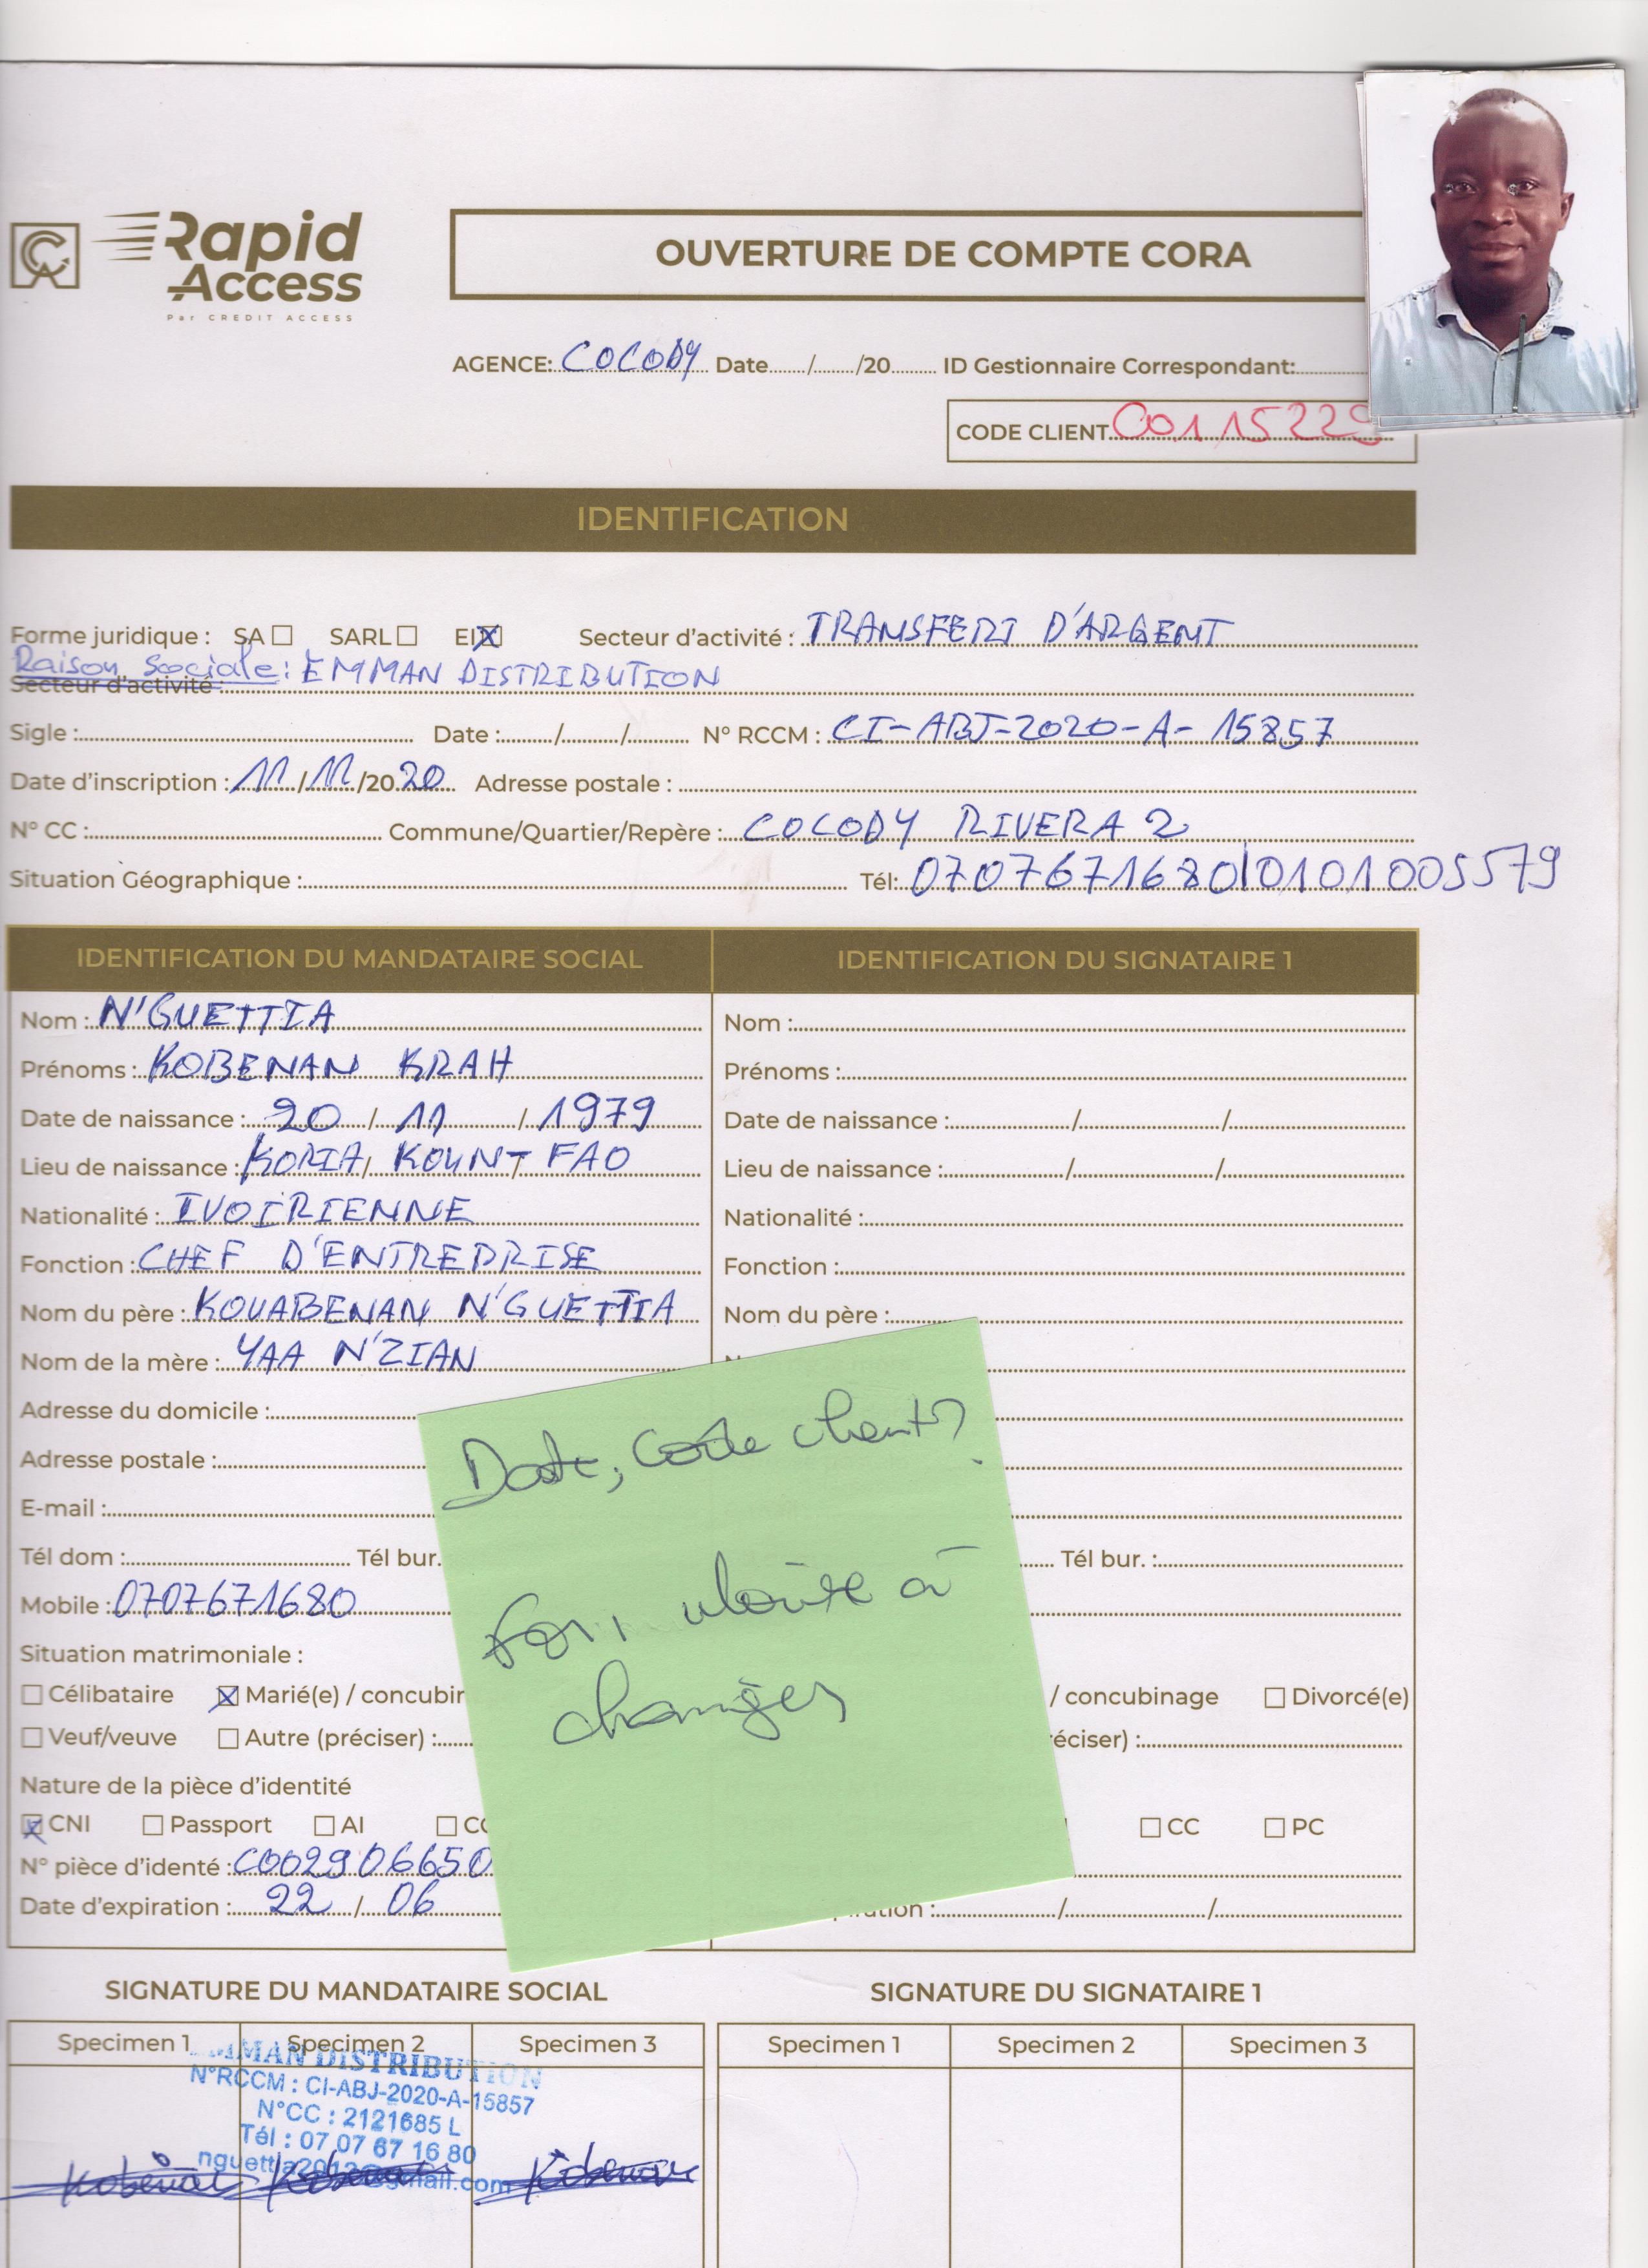 Rapid
Access
Par CREDIT ACCESS
OUVERTURE DE COMPTE CORA
AGENCE: COCODY Date....../....../20...... ID Gestionnaire Correspondant:
CODE CLIENT C0115229
IDENTIFICATION
Forme juridique : SA SARL EI Secteur d'activité : TRANSFERT D'ARGENT
Raison sociale : EMMAN DISTRIBUTION
Secteur d'activité :
Sigle : Date :....../....../...... N° RCCM : CI-ABJ-2020-A-15857
Date d'inscription : 11/11/2020 Adresse postale :
N° CC : Commune/Quartier/Repère : COCODY RIVERA 2
Situation Géographique : Tél: 0707671680/0101005579
IDENTIFICATION DU MANDATAIRE SOCIAL
Nom : N'GUETTIA
Prénoms : KOBENAN KRAH
Date de naissance : 20 / 11 / 1979
Lieu de naissance : KORIA/ KOUNT FAO
Nationalité : IVOIRIENNE
Fonction : CHEF D'ENTREPRISE
Nom du père : KOUABENAN N'GUETTIA
Nom de la mère : YAA N'ZIAN
Adresse du domicile :
Adresse postale :
E-mail :
Tél dom : Tél bur.
Mobile : 0707671680
Situation matrimoniale :
Célibataire Marié(e) / concubin
Veuf/veuve Autre (préciser) :
Nature de la pièce d'identité
CNI Passport AI
N° pièce d'identé : C002906650
Date d'expiration : 22 / 06
IDENTIFICATION DU SIGNATAIRE 1
Nom :
Prénoms :
Date de naissance : / /
Lieu de naissance : / /
Nationalité :
Fonction :
Nom du père :
Tél bur. :
/ concubinage Divorcé(e)
éciser) :
CC PC
/ /
Date, Code client?
à
changer
SIGNATURE DU MANDATAIRE SOCIAL
Specimen 1 Specimen 2 Specimen 3
MMAN DISTRIBUTION
N°RCCM : CI-ABJ-2020-A-15857
N°CC : 2121685 L
Tél : 07 07 67 16 80
nguettia2012@gmail.com
Kobenan Kobenan Kobenan
SIGNATURE DU SIGNATAIRE 1
Specimen 1 Specimen 2 Specimen 3